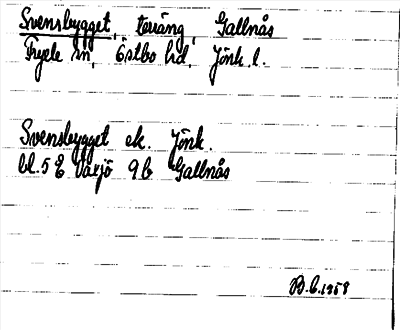 Svensbygget, terräng, Gallnås
Fryele sn, Östbo hd, Jönk. l.
Svensbygget ek. Jönk.
bl. 5 E Växjö 9b Gallnås
B.E. 1958